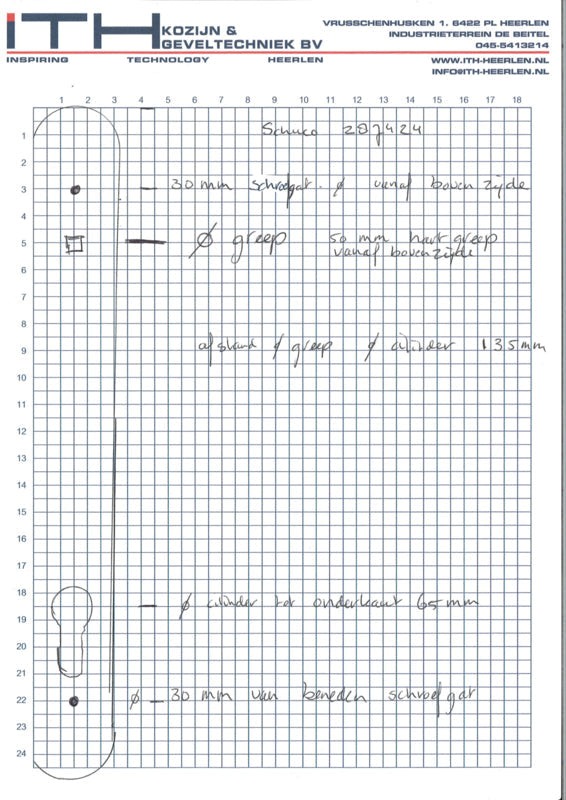 iTH KOZIJN &
GEVELTECHNIEK BV
INSPIRING TECHNOLOGY HEERLEN
VRUSSCHENHUSKEN 1. 6422 PL HEERLEN
INDUSTRIETERREIN DE BEITEL
045-5413214
WWW.ITH-HEERLEN.NL
INFO@ITH-HEERLEN.NL
1 2 3 4 5 6 7 8 9 10 11 12 13 14 15 16 17 18
1
Schuco 207424
2
3
30 mm schroefgat. ϕ vanaf bovenzijde
4
5
ϕ greep 50 mm hart greep
vanaf bovenzijde
6
7
8
9
afstand ϕ greep ϕ cilinder 135mm
10
11
12
13
14
15
16
17
18
ϕ cilinder tot onderkant 65mm
19
20
21
22
ϕ — 30 mm van beneden schroefgat
23
24